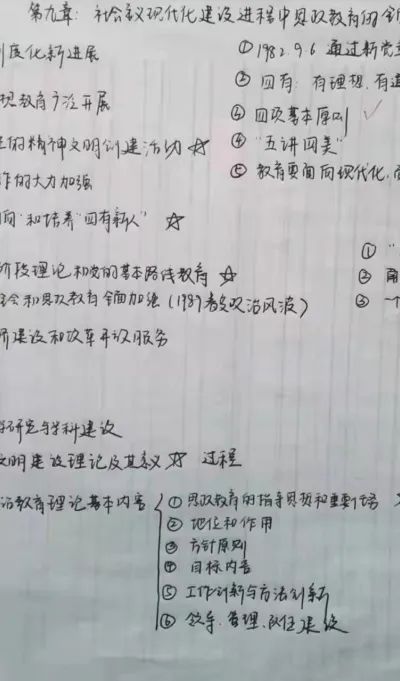 第九章：社会主义现代化建设进程中思政教育的全
制度化新进展
① 1982.9.6 通过新党章
② 四有：有理想、有道
想教育广泛开展
③ 四项基本原则 ✓
的精神文明创建活动 ☆
④ "五讲四美"
作的大力加强
⑤ 教育要面向现代化、
向"和培养"四有新人" ☆
① "
阶段理论和党的基本路线教育 ☆
②
会和思政教育全面加强（1989春夏政治风波）
③ 一个
济建设和改革开放服务
学研究与学科建设
文明建设理论及其意义 ☆ 过程
治教育理论基本内容
① 思政教育的指导思想和重要任务
② 地位和作用
③ 方针原则
④ 目标内容
⑤ 工作创新与方法创新
⑥ 领导、管理、队伍建设